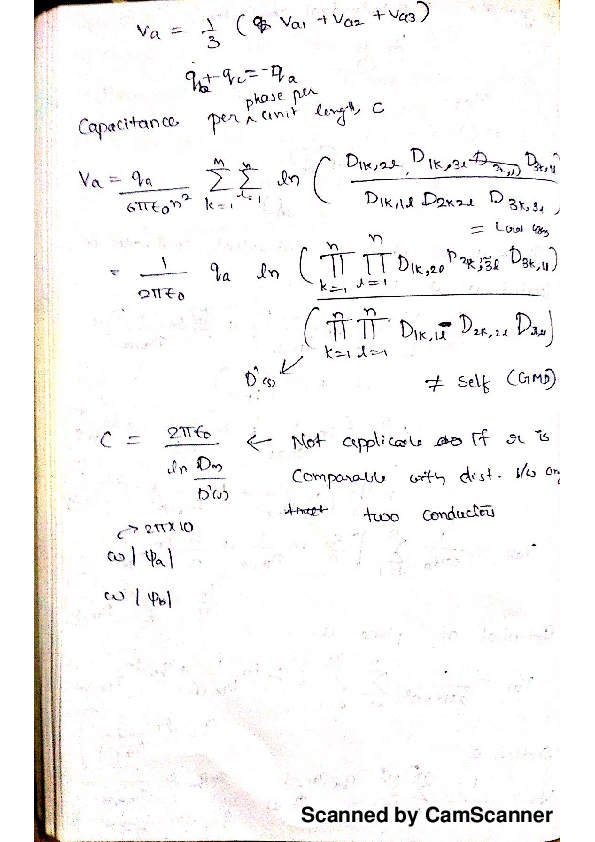 Va = 1/3 ( Va1 + Va2 + Va3)
qb + qc = -qa
phase per
Capacitance per unit length, C
Va = qa / 6πϵ0n² Σ k=1 Σ l=1 n ln ( D1k,2l D1k,3l / D1k,1l D2k2l D3k,3l
=
= 1 / 2πϵ0 qa ln ( n Π k=1 n Π l=1 D1k,2l D3k,1l )
( n Π k=1 n Π l=1 D1k,1l D2k,2l )
D'(s)
≠ self (GMD)
C = 2πϵ0 / ln Dm / D'(s) ← Not applicable If r is
Comparable with dist. b/w any
two conductors
→ 2π×10
ω|ψa|
ω|ψb|
Scanned by CamScanner